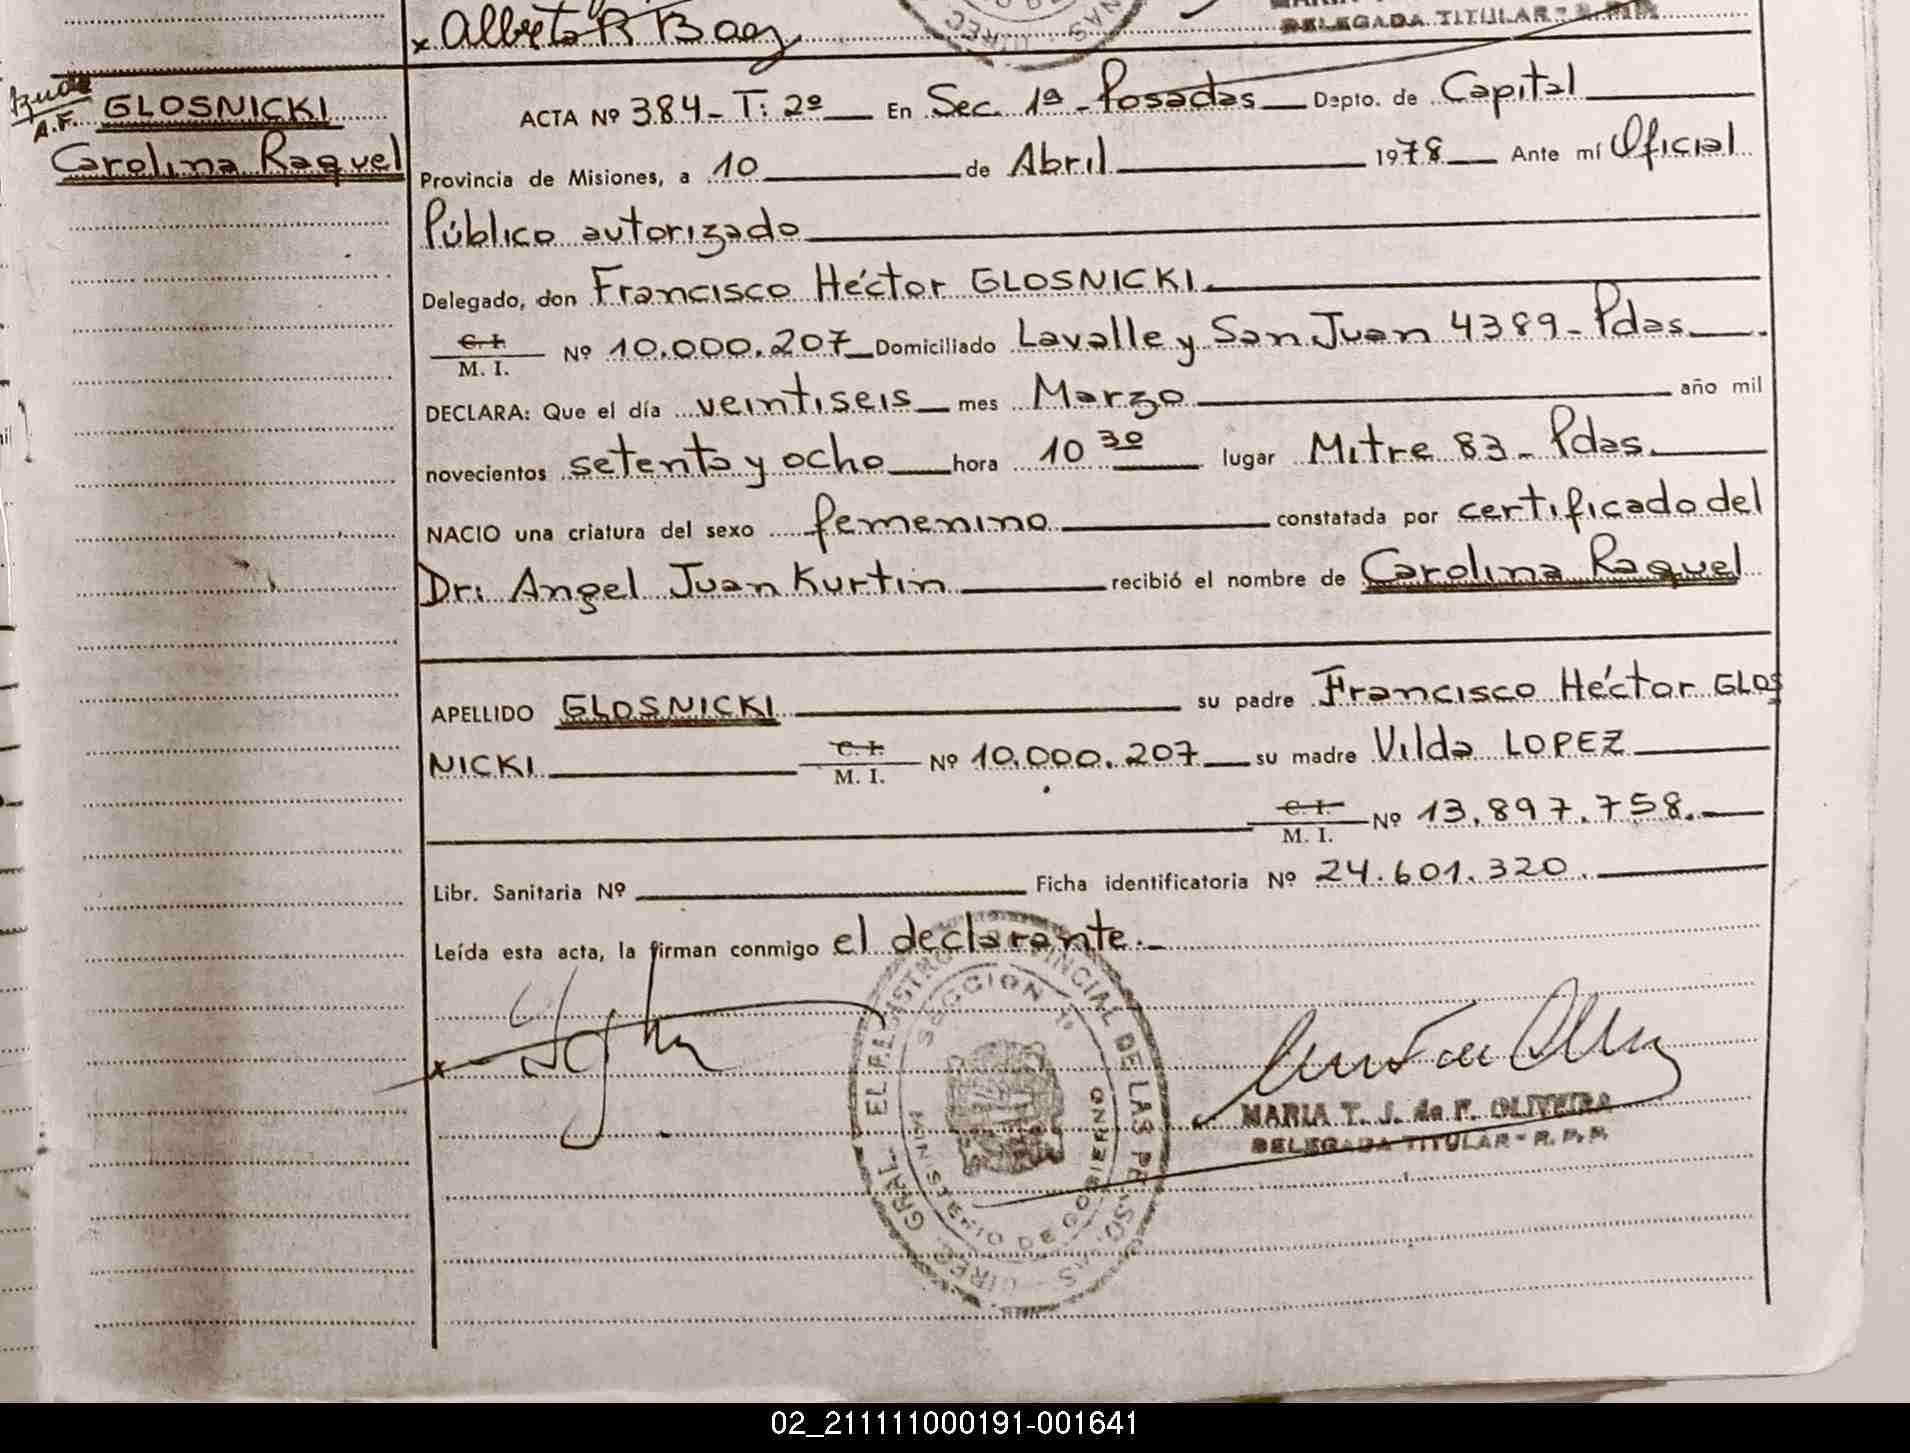 x Alberto R Baez
DELEGADA TITULAR - R. P. P.
A.F. GLOSNICKI
Carolina Raquel
ACTA Nº 384 - T: 2º En Sec. 1ª - Posadas Dpto. de Capital
Provincia de Misiones, a 10 de Abril 1978 Ante mí Oficial
Público autorizado
Delegado, don Francisco Héctor GLOSNICKI.
C. I.
M. I. Nº 10.000.207 Domiciliado Lavalle y San Juan 4389 - Pdas
DECLARA: Que el día veintiseis mes Marzo año mil
novecientos setenta y ocho hora 10 30 lugar Mitre 83 - Pdas.
NACIO una criatura del sexo femenino constatada por certificado del
Dr: Angel Juan Kurtin recibió el nombre de Carolina Raquel
APELLIDO GLOSNICKI su padre Francisco Héctor GLOS
NICKI C. I. M. I. Nº 10.000.207 su madre Vilda LOPEZ
C. I. M. I. Nº 13.897.758.
Libr. Sanitaria Nº Ficha identificatoria Nº 24.601.320.
Leída esta acta, la firman conmigo el declarante.
SECCION 1ª
MINISTERIO DE GOBIERNO
MARIA T. J. de F. OLIVEIRA
DELEGADA TITULAR - R. P. P.
02_211111000191-001641